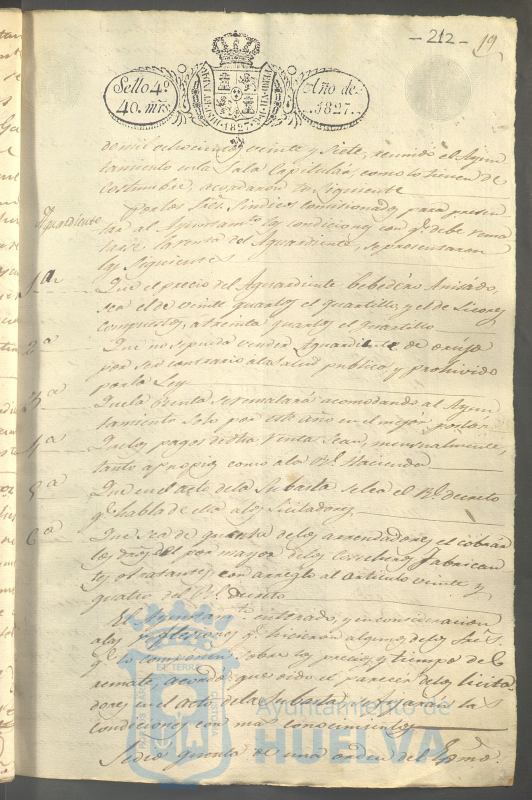 - 212 - 19
Sello 4º
40. mrs.
HISPANIARUM 1827
Año de
1827.
de mil ochocientos veinte y siete, reunido el Ayun
tamiento en la Sala Capitular, como lo tienen de
costumbre, acordaron lo siguiente
Aguardiente
Por los Sres. Sindicos comisionados para presen
tar al Ayuntamto. las condiciones con q. debe rema
tarse la renta del Aguardiente, se presentaron
las siguientes
1a
Que el precio del Aguardiente bebedero Anisado,
sea el de veinte quartos el quartillo, y el de Licores
compuestos, a treinta quartos el quartillo
2a
Que no se pueda vender Aguardiente de orujo
por ser contrario a la salud publica y prohivido
por la Ley
3a
Que la renta se rematará acomodando al Ayun
tamiento solo por este año en el mejor postor
4a
Que los pagos de dha renta sean mensualmente,
tanto a propios como a la Rl. Hacienda
5a
Que en el acto de la Subasta se lea el Rl. decreto
q. habla de ella a los licitadores
6a
Que sea de quenta de los arrendadores el cobrar
los dros. por mayor de los cosecheros, fabrican
tes, o tratantes con arreglo al articulo veinte y
quatro del Rl. Decreto
El Ayuntamto. enterado, y en consideracion
a las reflexiones q. hicieron algunos de los Sres.
q. lo componen sobre los precios y tiempo del
remate, acordó que oido el parecer de los licita
dores en el acto de la Subasta, se fixaran las
condiciones con mas conocimiento
Se dio quenta de una orden del Exmo.
Ayuntamiento de
HUELVA